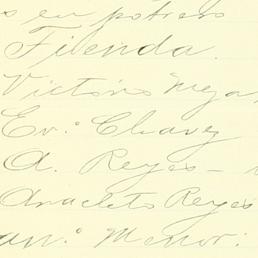 s en potrero
Tienda.
Victorio Meja
Ev.º Chavez
A. Reyes –
Anacleto Reyes
an.º Menor: